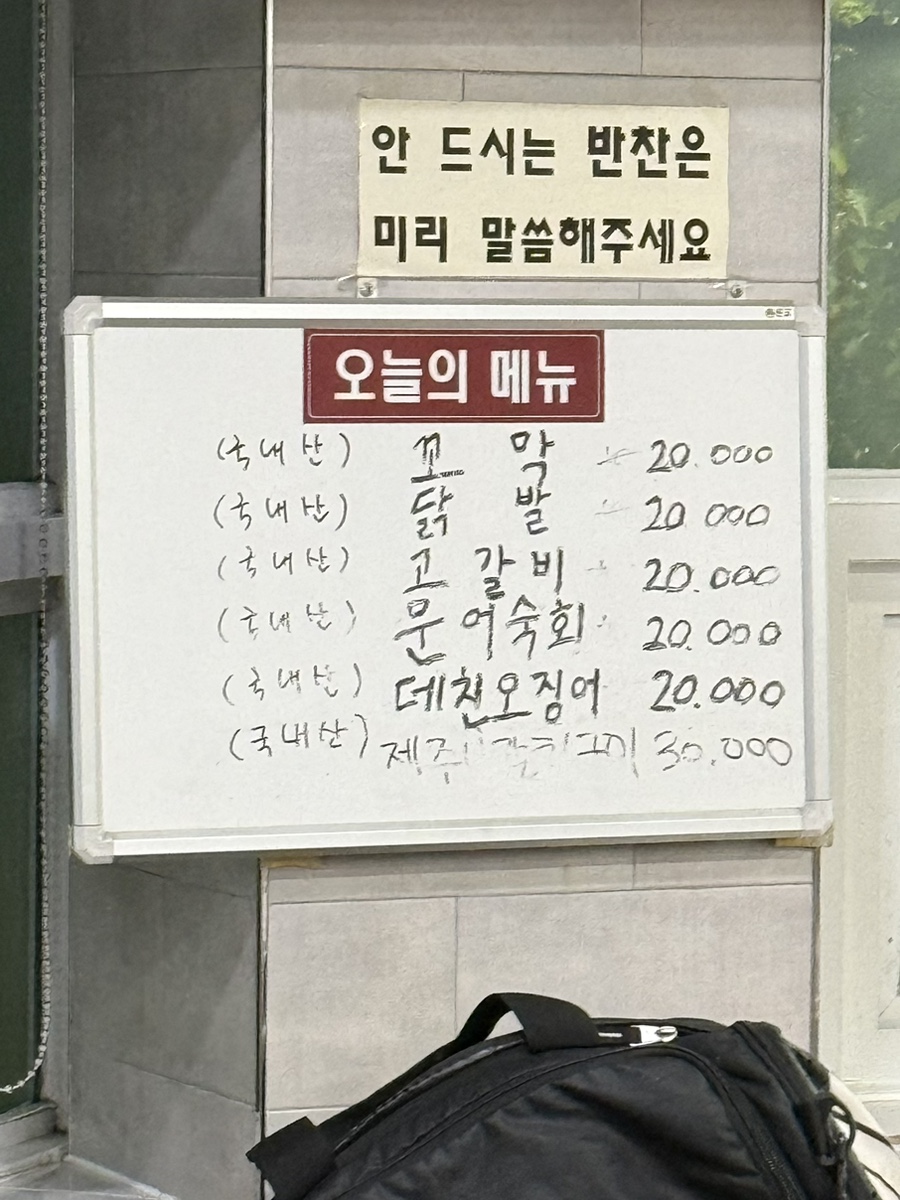 안 드시는 반찬은
미리 말씀해주세요
오늘의 메뉴
(국내산) 꼬막 20.000
(국내산) 닭발 20.000
(국내산) 고갈비 20.000
(국내산) 문어숙회 20.000
(국내산) 데친오징어 20.000
(국내산) 제주 30.000